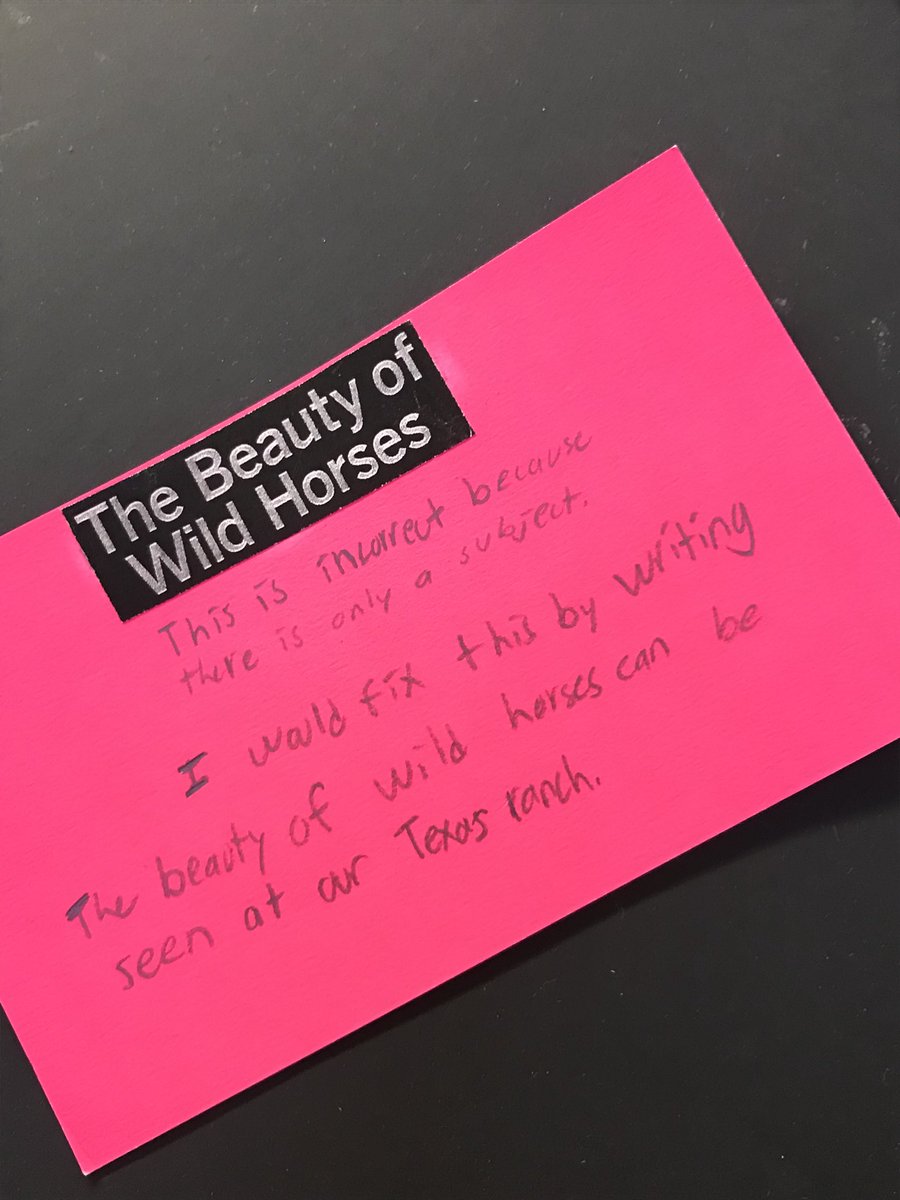 The Beauty of
Wild Horses
This is incorrect because
there is only a subject.
I would fix this by writing
The beauty of wild horses can be
seen at our Texas ranch.